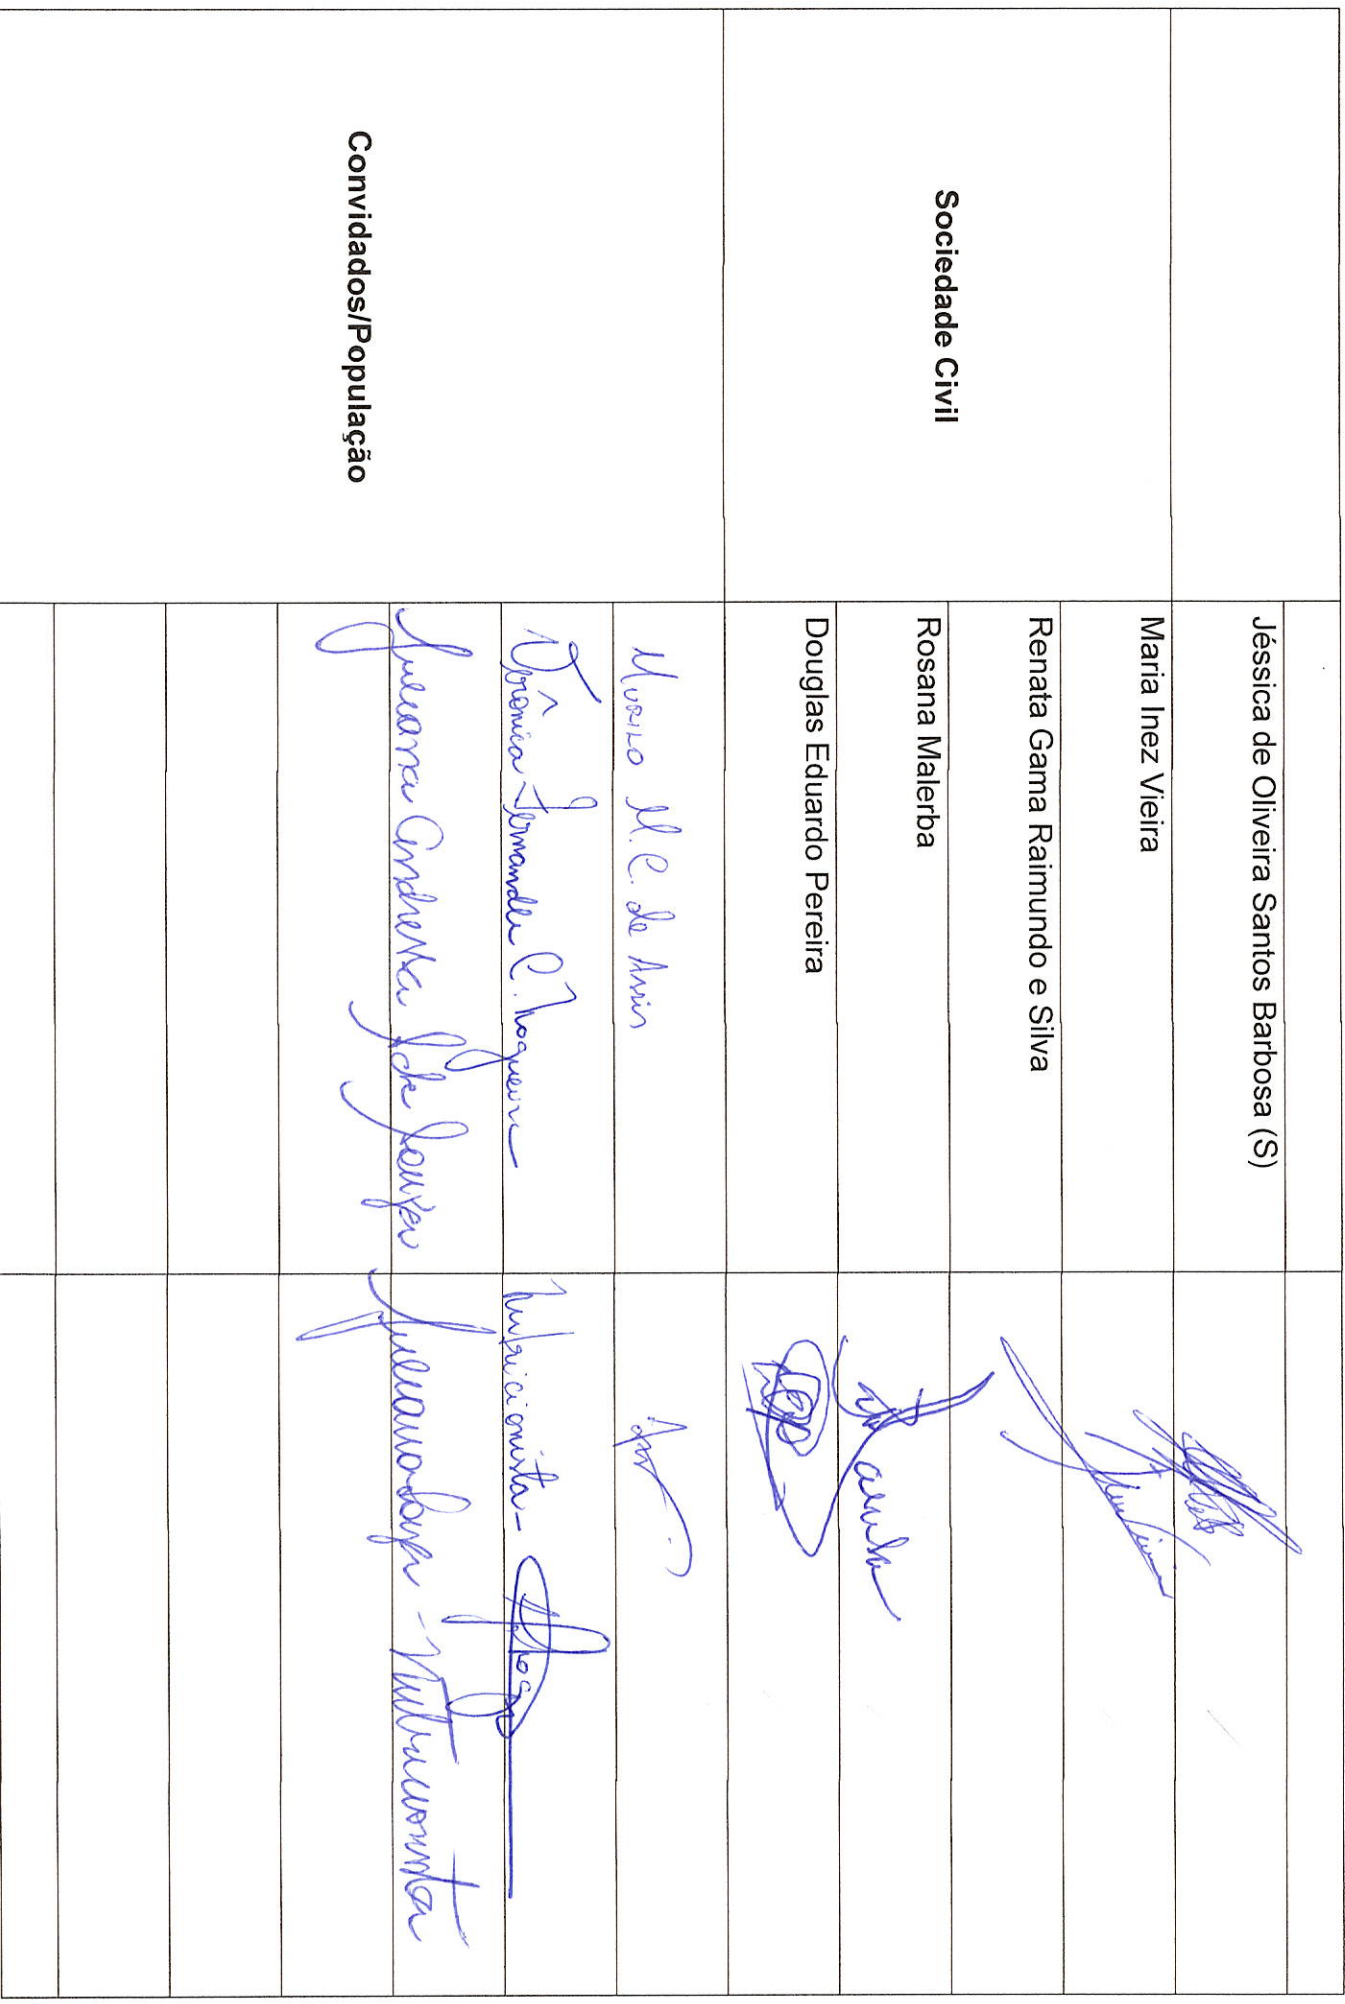 Jéssica de Oliveira Santos Barbosa (S)
Sociedade Civil
Maria Inez Vieira
Renata Gama Raimundo e Silva
Rosana Malerba
Douglas Eduardo Pereira
Convidados/População
Murilo M. C. de Assis
Verônica Fernandes C. Nogueira
Nutricionista -
Juliana Andressa de Souza
Juliana Souza - Nutricionista